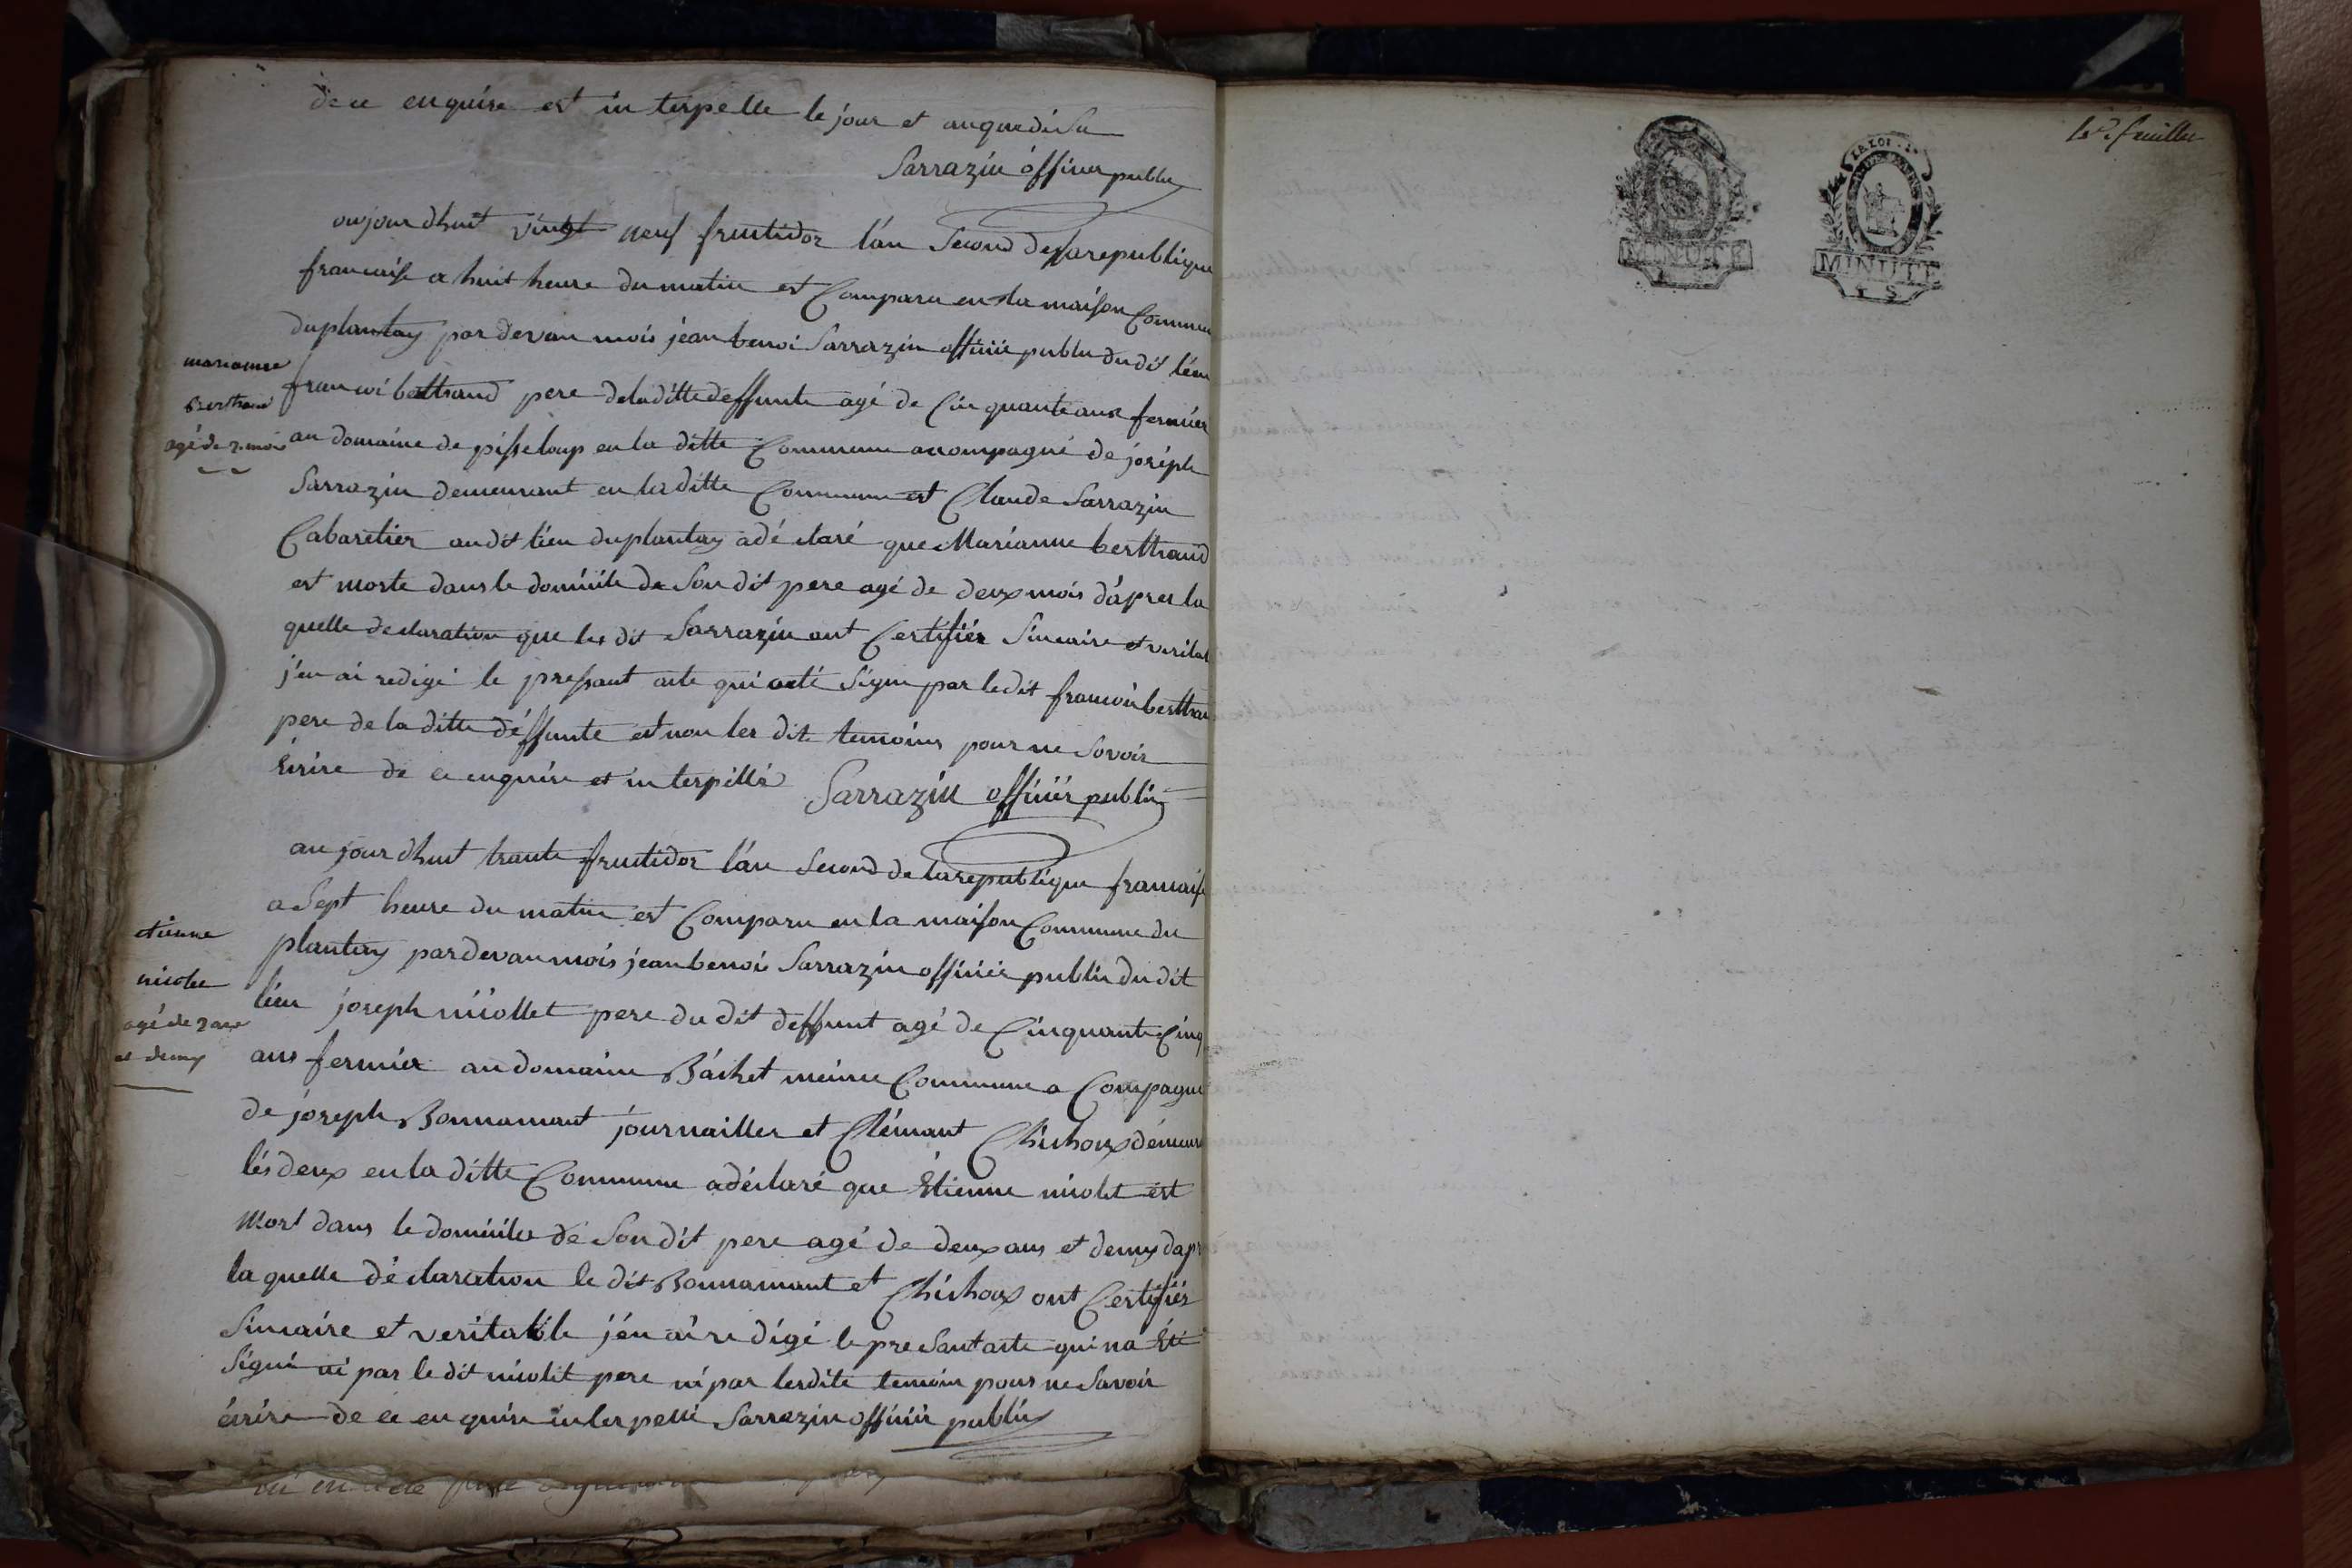 de ce enquire est in terpelle le jour et an que di su
Sarrazin officier public
aujourdhuit vingt neuf fructidor l'an Second de la republique
francaise a huit heure du matin est Comparu en la maison Commune
du plantay par devan mois jean benoi Sarrazin officier public du dit lieu
marianne
Berthrand
agé de 2. mois
francoi berttrand pere de la ditte deffunte agé de Cinquante ans fermier
au domaine de pisseloup en la ditte Commune acompagné de joséph
Sarrazin demeurant en la ditte Commune est Claude Sarrazin
Cabaretier au dit lieu du plantay a dé claré que Marianne berttrand
est morte dans le domicile de Son dit pere agé de deux mois d'apres la
quelle declaration que les dit Sarrazin ont Certifiér Sincaire et veritab
j'en ai redigé le pressant acte qui a eté Signe par le dit francoi berttran
pere de la ditte déffunte est non les dit temoins pour ne Savoir
Ecrire de ce enquire et in terpillé Sarrazin officiér public
aujour dhuit trante fructidor l'an Second de la republique francaise
a Sept heure du matin est Comparu en la maison Commune du
plantay par devan mois jean benoi Sarrazin officiér public du dit
etienne
nicolee
agé de 2 ans
et demy
liéu joseph nicollet pere du dit deffunt agé de Cinquante Cinq
ans fermier au domaine Bachet meime Commune a Compagne
de joseph Bonnamant journailler et Clémant Chichoux démeur
lés deux en la ditte Commune a déclaré que Etienne nicolet est
Mort dans le domicile de Son dit pere agé de deux ans et demy dapr
la quelle déclaration le dit Bonnamant et Chichoux ont Certifiér
Sincaire et veritable j'én ai re digé le pre Sant acte qui na Eté
Signé ni par le dit nicolit pere ni par lesdite temoin pour ne Savoir
écrire de ce en quire interpellé Sarrazin officiér public
15.e feuillet
LA LOI
MINUTE
MINUTE